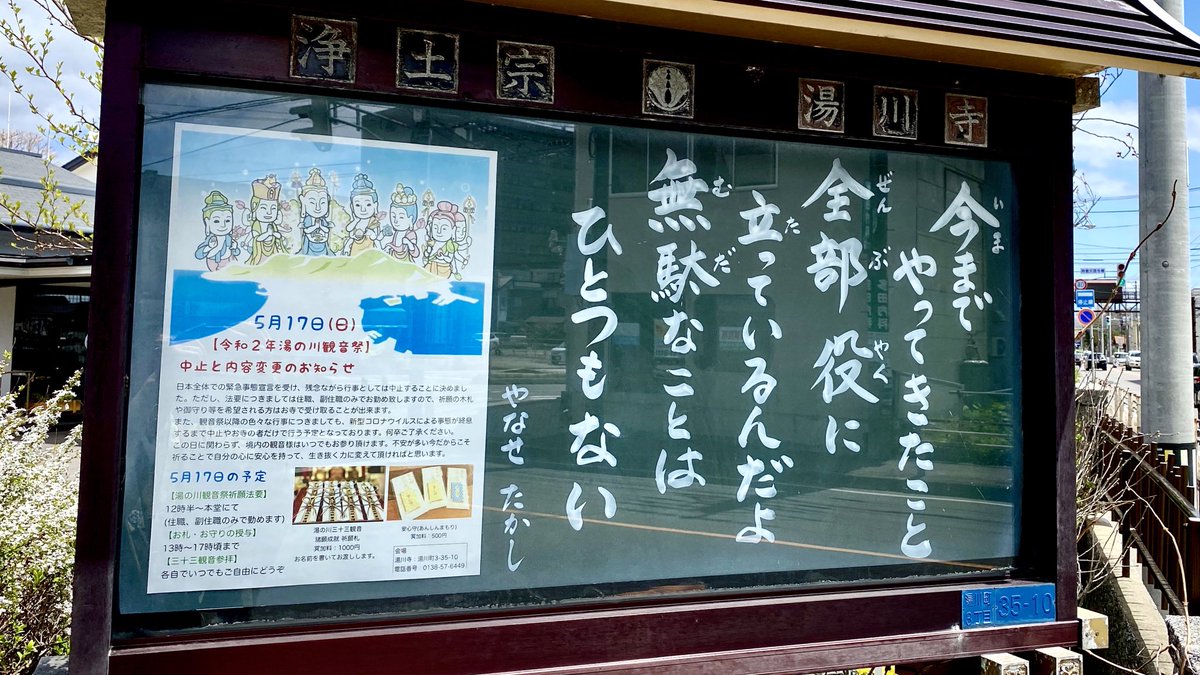 浄土宗 湯川寺
今まで
やってきたこと
全部役に
立っているんだよ
無駄なことは
ひとつもない
やなせ たかし
いま
ぜんぶ やく
た
むだ
5月17日(日)
【令和2年湯の川観音祭】
中止と内容変更のお知らせ
日本全体での緊急事態宣言を受け、残念ながら行事としては中止することに決めまし
た。ただし、法要につきましては住職、副住職のみでお勤め致しますので、祈願の木札
や御守り等を希望される方はお寺で受け取ることが出来ます。
また、観音祭以降の色々な行事につきましても、新型コロナウイルスによる事態が終息
するまで中止やお寺の者だけで行う予定となっております。何卒ご了承ください。
この日に関わらず、境内の観音様はいつでもお参り頂けます。不安が多い今だからこそ
祈ることで自分の心に安心を持って、生き抜く力に変えて頂ければと思います。
5月17日の予定
【湯の川観音祭祈願法要】
12時半〜本堂にて
(住職、副住職のみで勤めます)
【お札・お守りの授与】
13時〜17時頃まで
【三十三観音参拝】
各自でいつでもご自由にどうぞ
湯の川三十三観音
諸願成就 祈願札
冥加料:1000円
お名前を書いてお渡しします。
安心守(あんしんまもり)
冥加料:500円
会場
湯川寺:湯川町3-35-10
電話番号 0138-57-6449
湯川町
3丁目
35-10
停止線